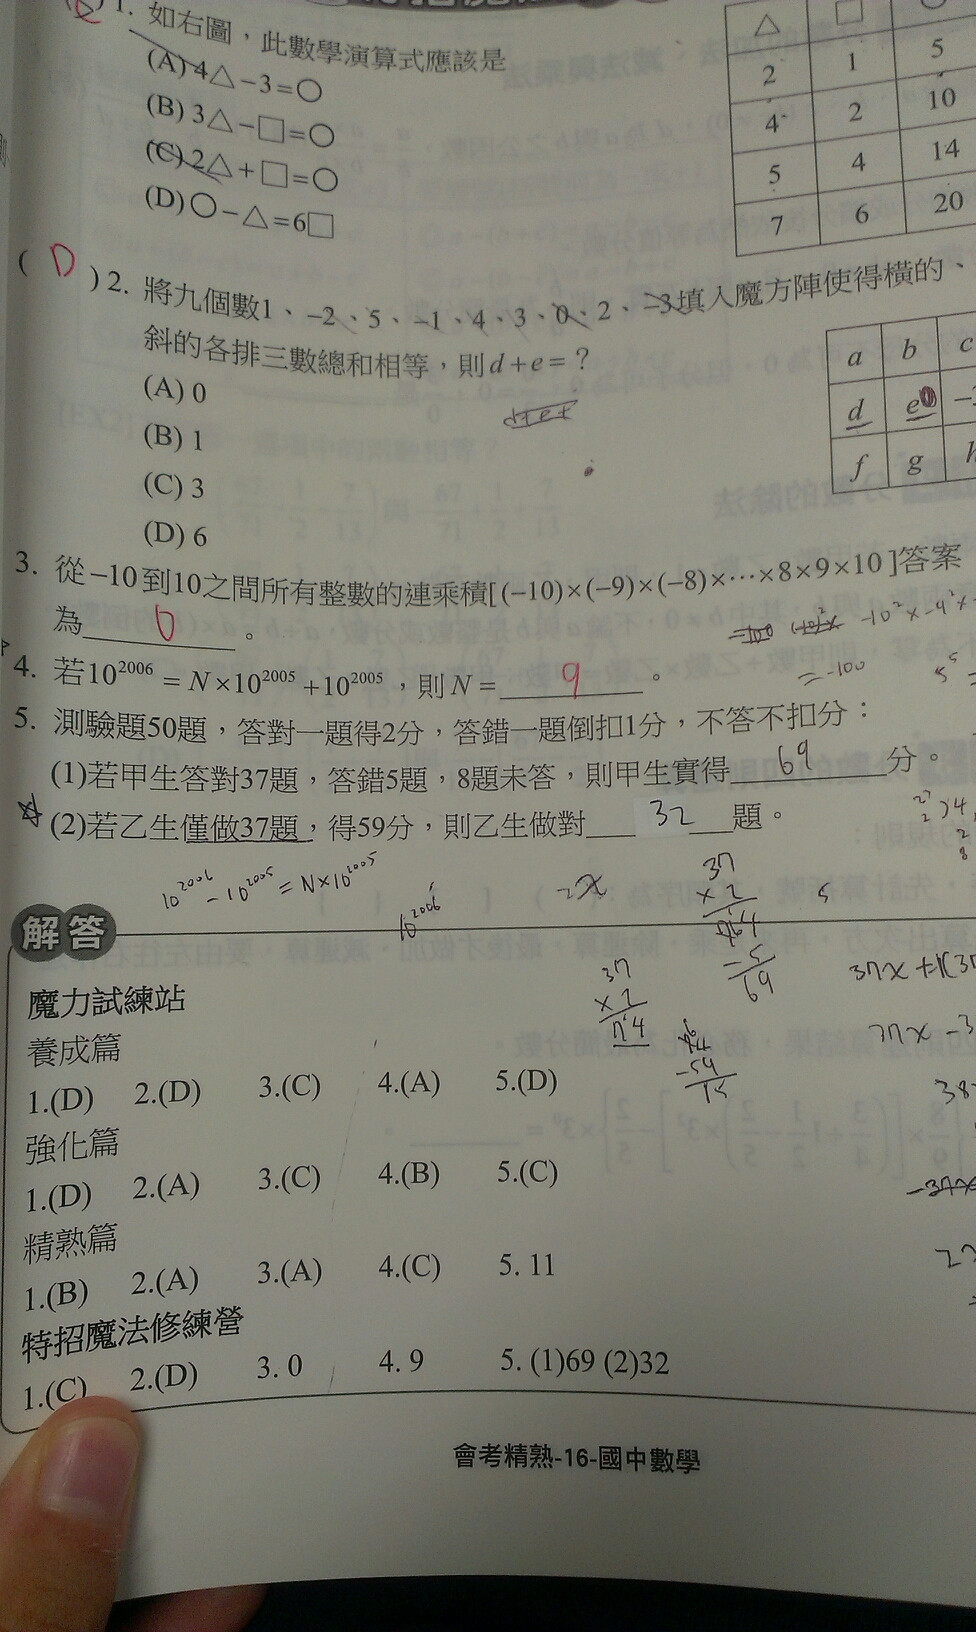 1. 如右圖，此數學演算式應該是
(A) 4△－3＝○
(B) 3△－□＝○
(C) 2△＋□＝○
(D) ○－△＝6□
△ □ ○
2 1 5
4 2 10
5 4 14
7 6 20
( D ) 2. 將九個數1、－2、5、－1、4、3、0、2、－3填入魔方陣使得橫的、
斜的各排三數總和相等，則d＋e＝？
(A) 0
(B) 1
(C) 3
(D) 6
a b c
d e 0
f g h
3. 從－10到10之間所有整數的連乘積[(－10)×(－9)×(－8)×⋯×8×9×10]答案
為 0 。
＝－100
4. 若10²⁰⁰⁶＝N×10²⁰⁰⁵＋10²⁰⁰⁵，則N＝ 9 。
5. 測驗題50題，答對一題得2分，答錯一題倒扣1分，不答不扣分：
(1)若甲生答對37題，答錯5題，8題未答，則甲生實得 69 分。
(2)若乙生僅做37題，得59分，則乙生做對 32 題。
10²⁰⁰⁶－10²⁰⁰⁵＝N×10²⁰⁰⁵
10²⁰⁰⁶
37
×2
－5
69
37
×2
74
－59
15
解答
魔力試練站
養成篇
1.(D) 2.(D) 3.(C) 4.(A) 5.(D)
強化篇
1.(D) 2.(A) 3.(C) 4.(B) 5.(C)
精熟篇
1.(B) 2.(A) 3.(A) 4.(C) 5. 11
特招魔法修練營
1.(C) 2.(D) 3. 0 4. 9 5. (1)69 (2)32
會考精熟-16-國中數學